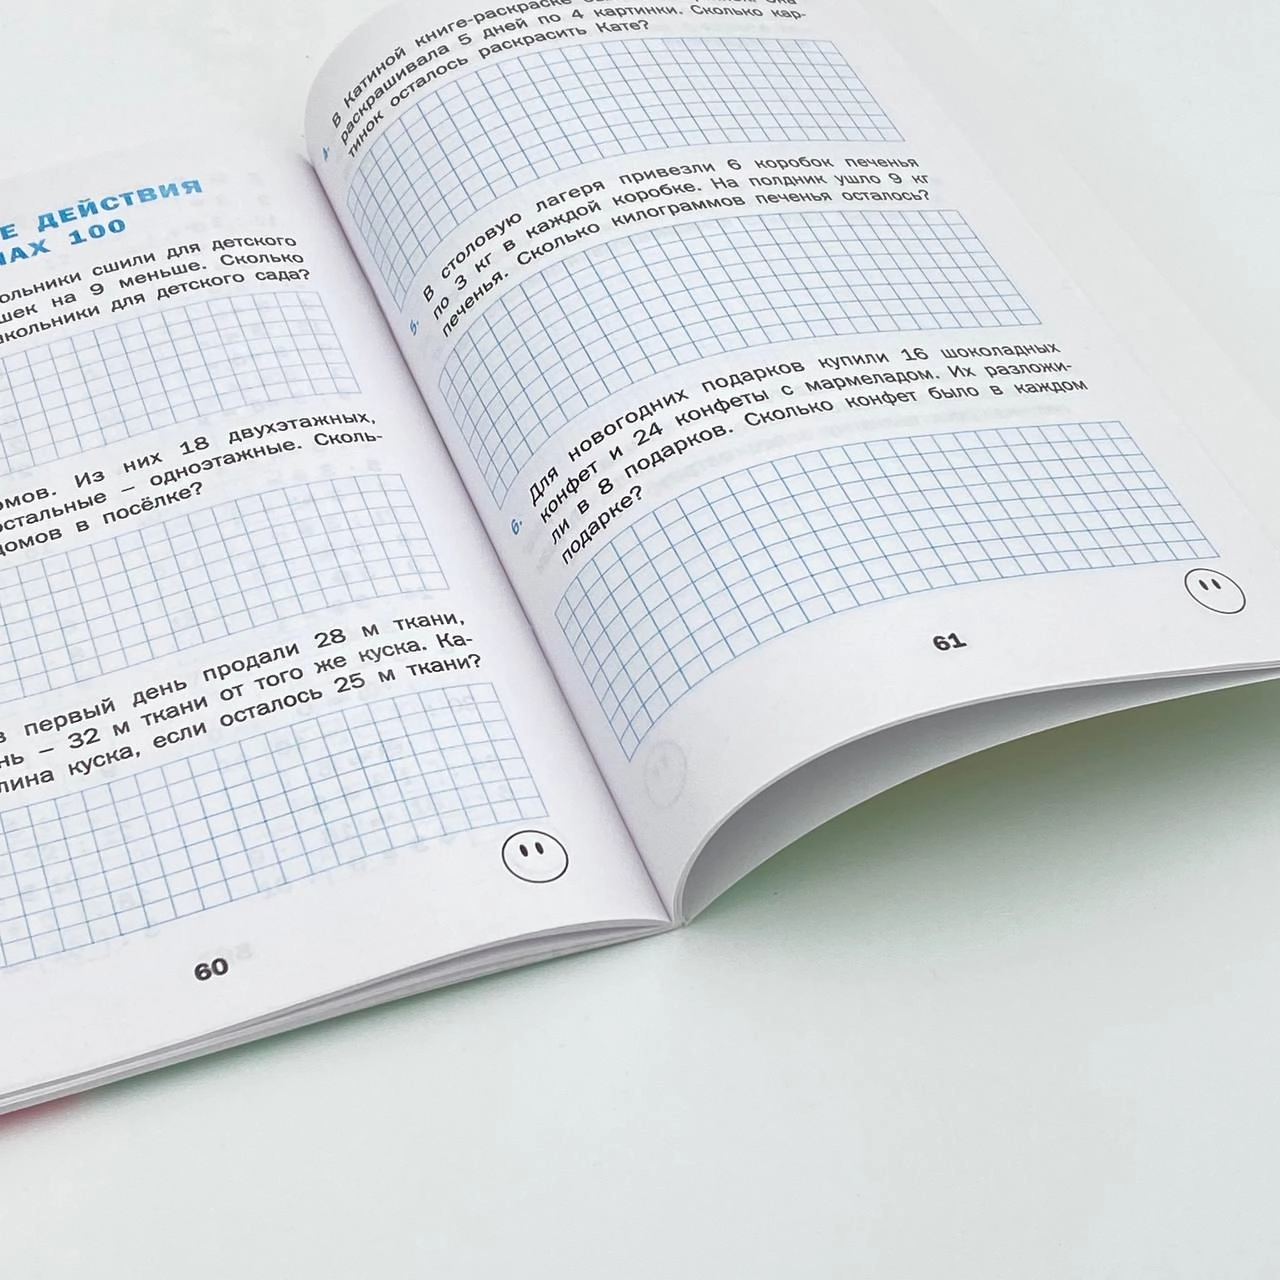 ДЕЙСТВИЯ
100
сшили для детского
на 9 меньше. Сколько
для детского сада?
Из них 18 двухэтажных,
– одноэтажные. Сколь-
домов в посёлке?
первый день продали 28 м ткани,
– 32 м ткани от того же куска. Ка-
куска, если осталось 25 м ткани?
60
В Катиной книге-раскраске
раскрашивала 5 дней по 4 картинки. Сколько кар-
тинок осталось раскрасить Кате?
5. В столовую лагеря привезли 6 коробок печенья
по 3 кг в каждой коробке. На полдник ушло 9 кг
печенья. Сколько килограммов печенья осталось?
6. Для новогодних подарков купили 16 шоколадных
конфет и 24 конфеты с мармеладом. Их разложи-
ли в 8 подарков. Сколько конфет было в каждом
подарке?
61